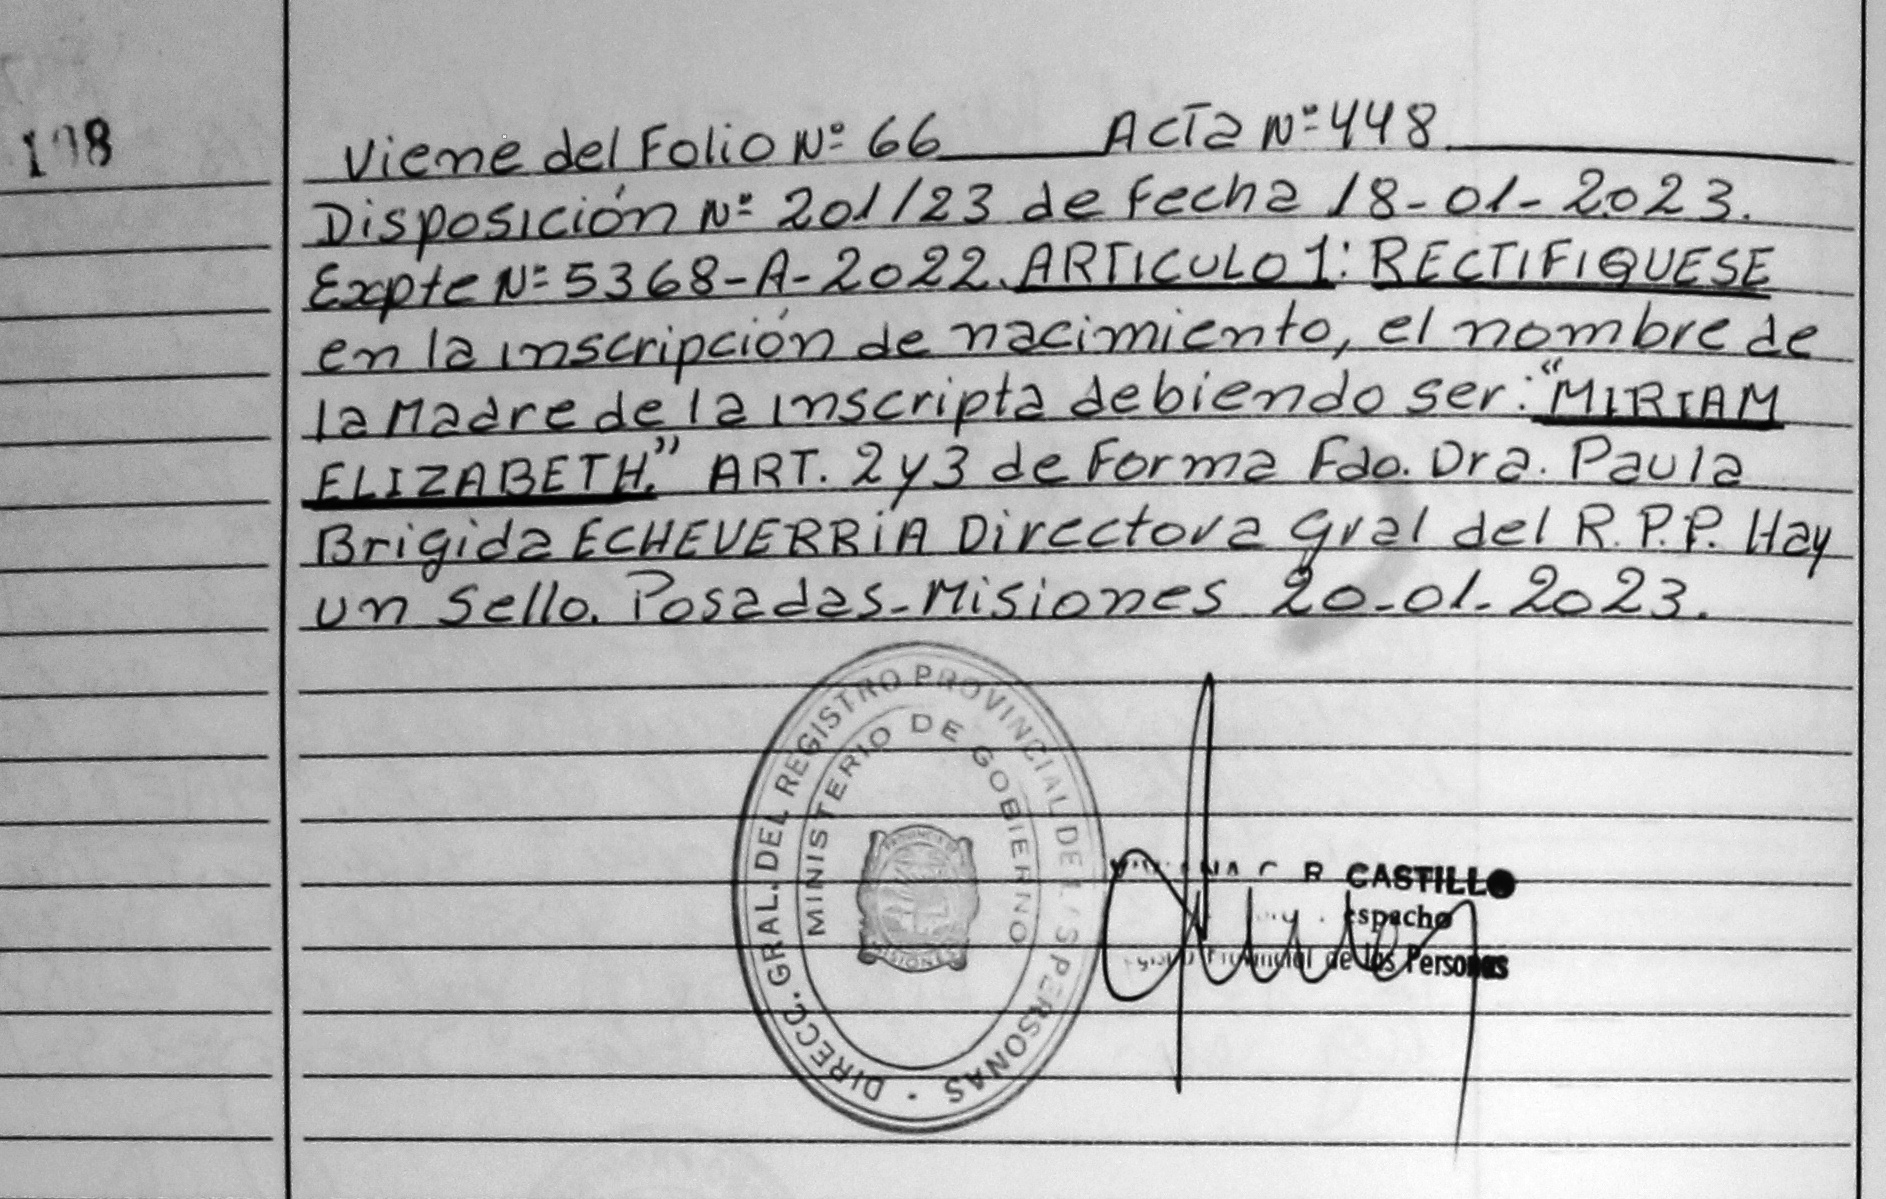 198
Viene del Folio Nº 66 Acta Nº 448
Disposición Nº 201/23 de fecha 18-01-2023.
Expte Nº 5368-A-2022. ARTICULO 1: RECTIFIQUESE
en la inscripción de nacimiento, el nombre de
la Madre de la inscripta debiendo ser: "MIRIAM
ELIZABETH." ART. 2 y 3 de Forma Fdo. Dra. Paula
Brigida ECHEVERRiA Directora Gral del R.P.P. Hay
un Sello. Posadas-Misiones 20-01-2023.
DIRECC. GRAL. DEL REGISTRO PROVINCIAL DE LAS PERSONAS
MINISTERIO DE GOBIERNO
MISIONES
CASTILLO
espacho
Provincial de las Personas